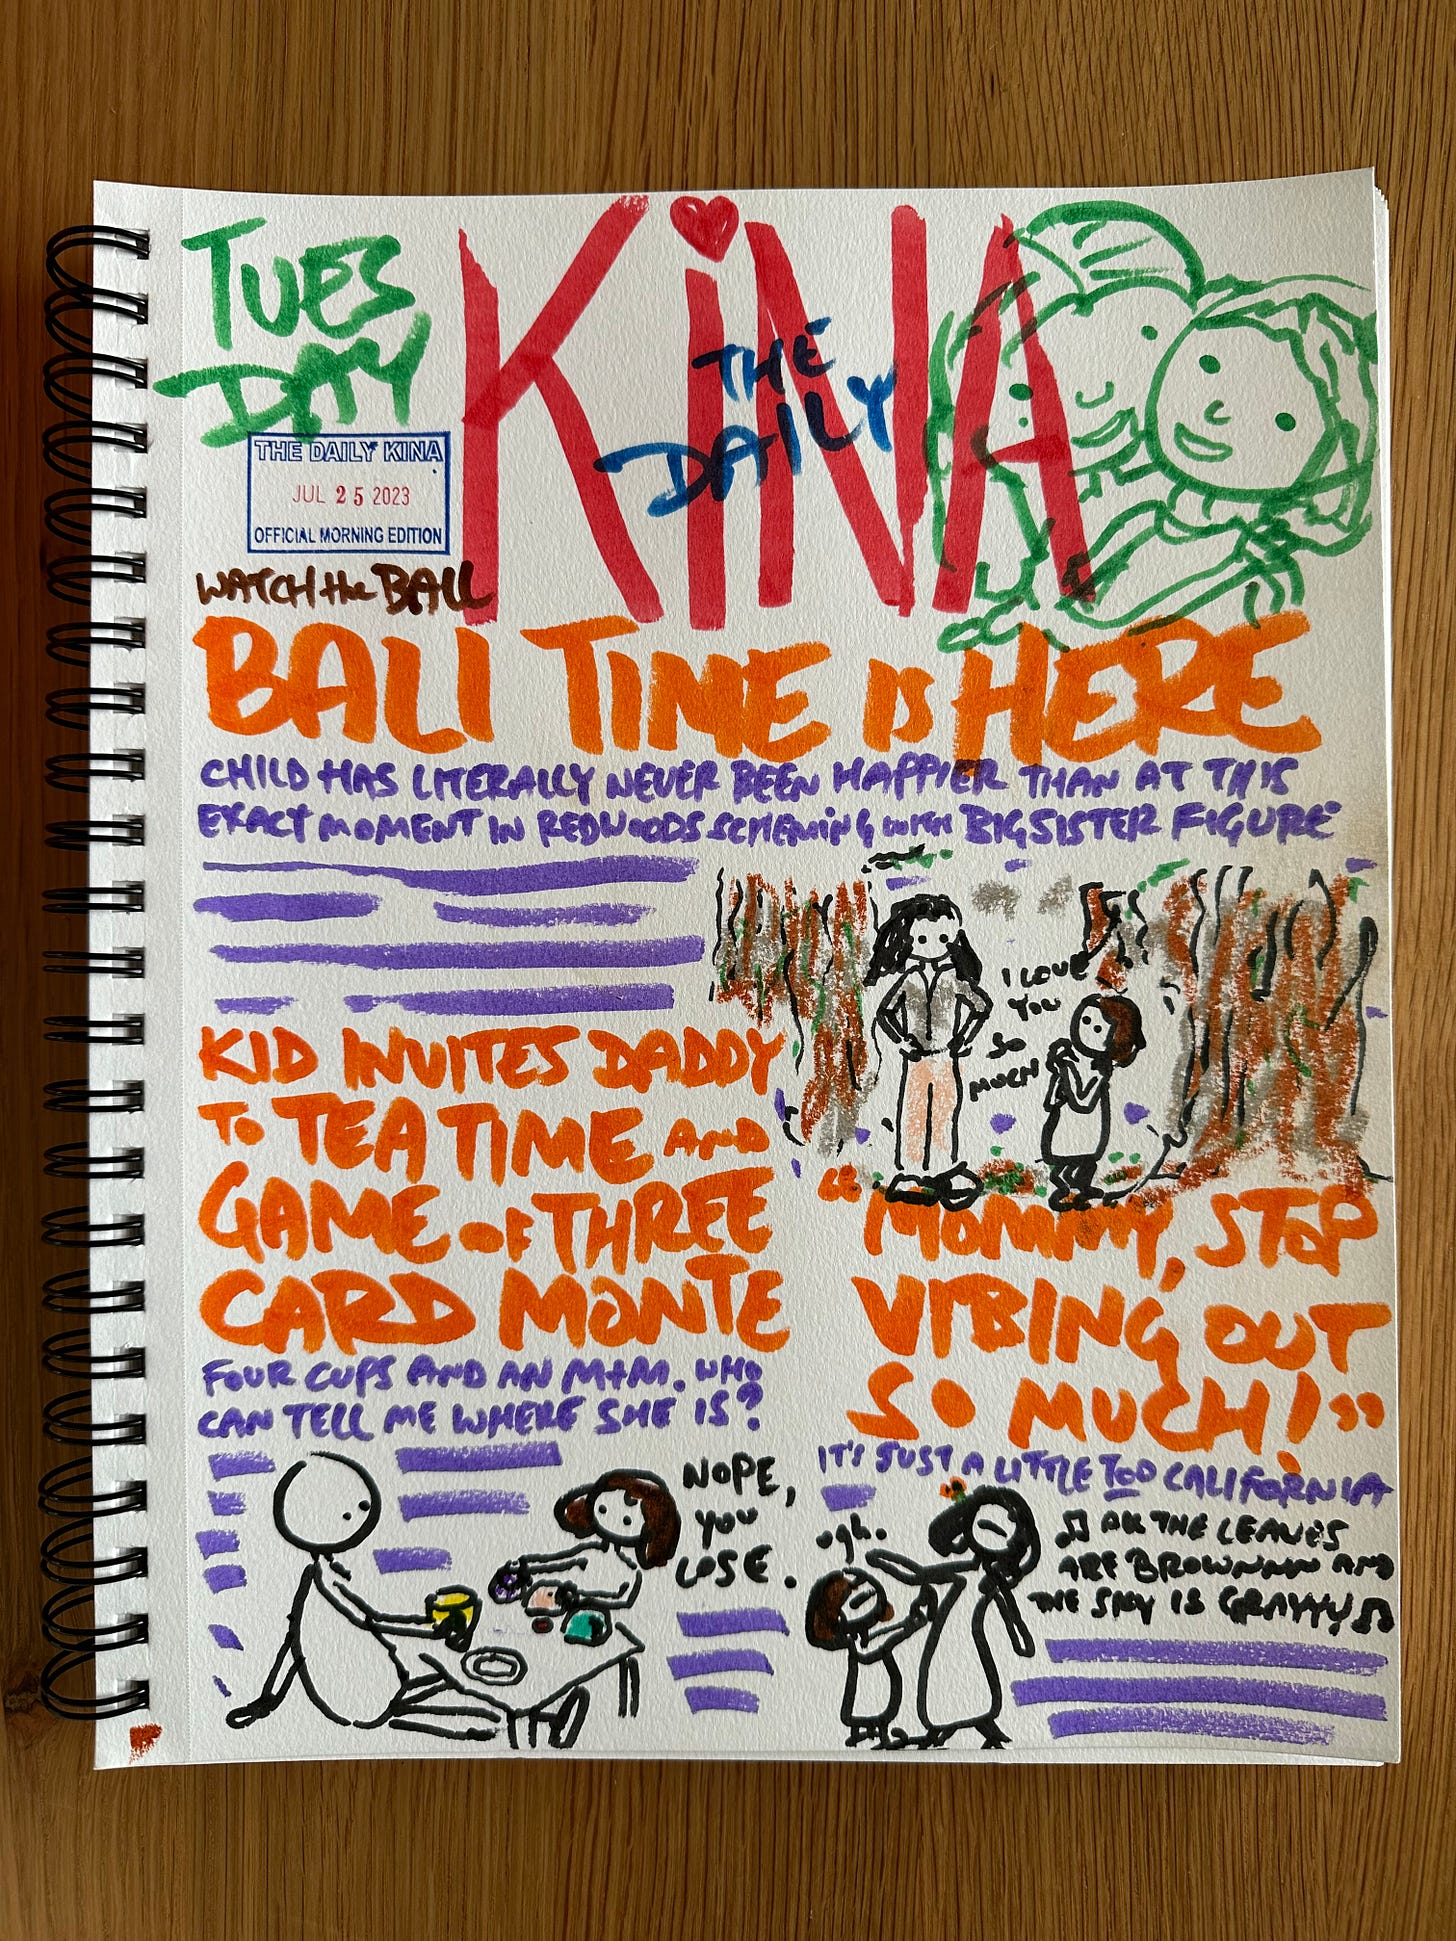 TUES
DAY
KiNA
THE
DAILY
THE DAILY KINA
JUL 25 2023
OFFICIAL MORNING EDITION
WATCH the BALL
BALI TIME is HERE
CHILD HAS LITERALLY NEVER BEEN HAPPIER THAN AT THIS
EXACT MOMENT IN REDWOODS SCHEMiNG WITH BIG SISTER FIGURE
I LOVE
YOU
SO
MUCH
KID INVITES DADDY
To TEA TIME AND
GAME oF THREE
CARD MONTE
FOUR CUPS AND AN M+M. WHO
CAN TELL ME WHERE SHE IS?
NOPE,
YOU
LOSE.
“MOMMY, STOP
VIBING OUT
SO MUCH!”
IT'S JUST A LITTLE TOO CALIFORNIA
ugh.
♫ ALL THE LEAVES
ARE BROWNNN AND
THE SKY IS GRAYYY ♫